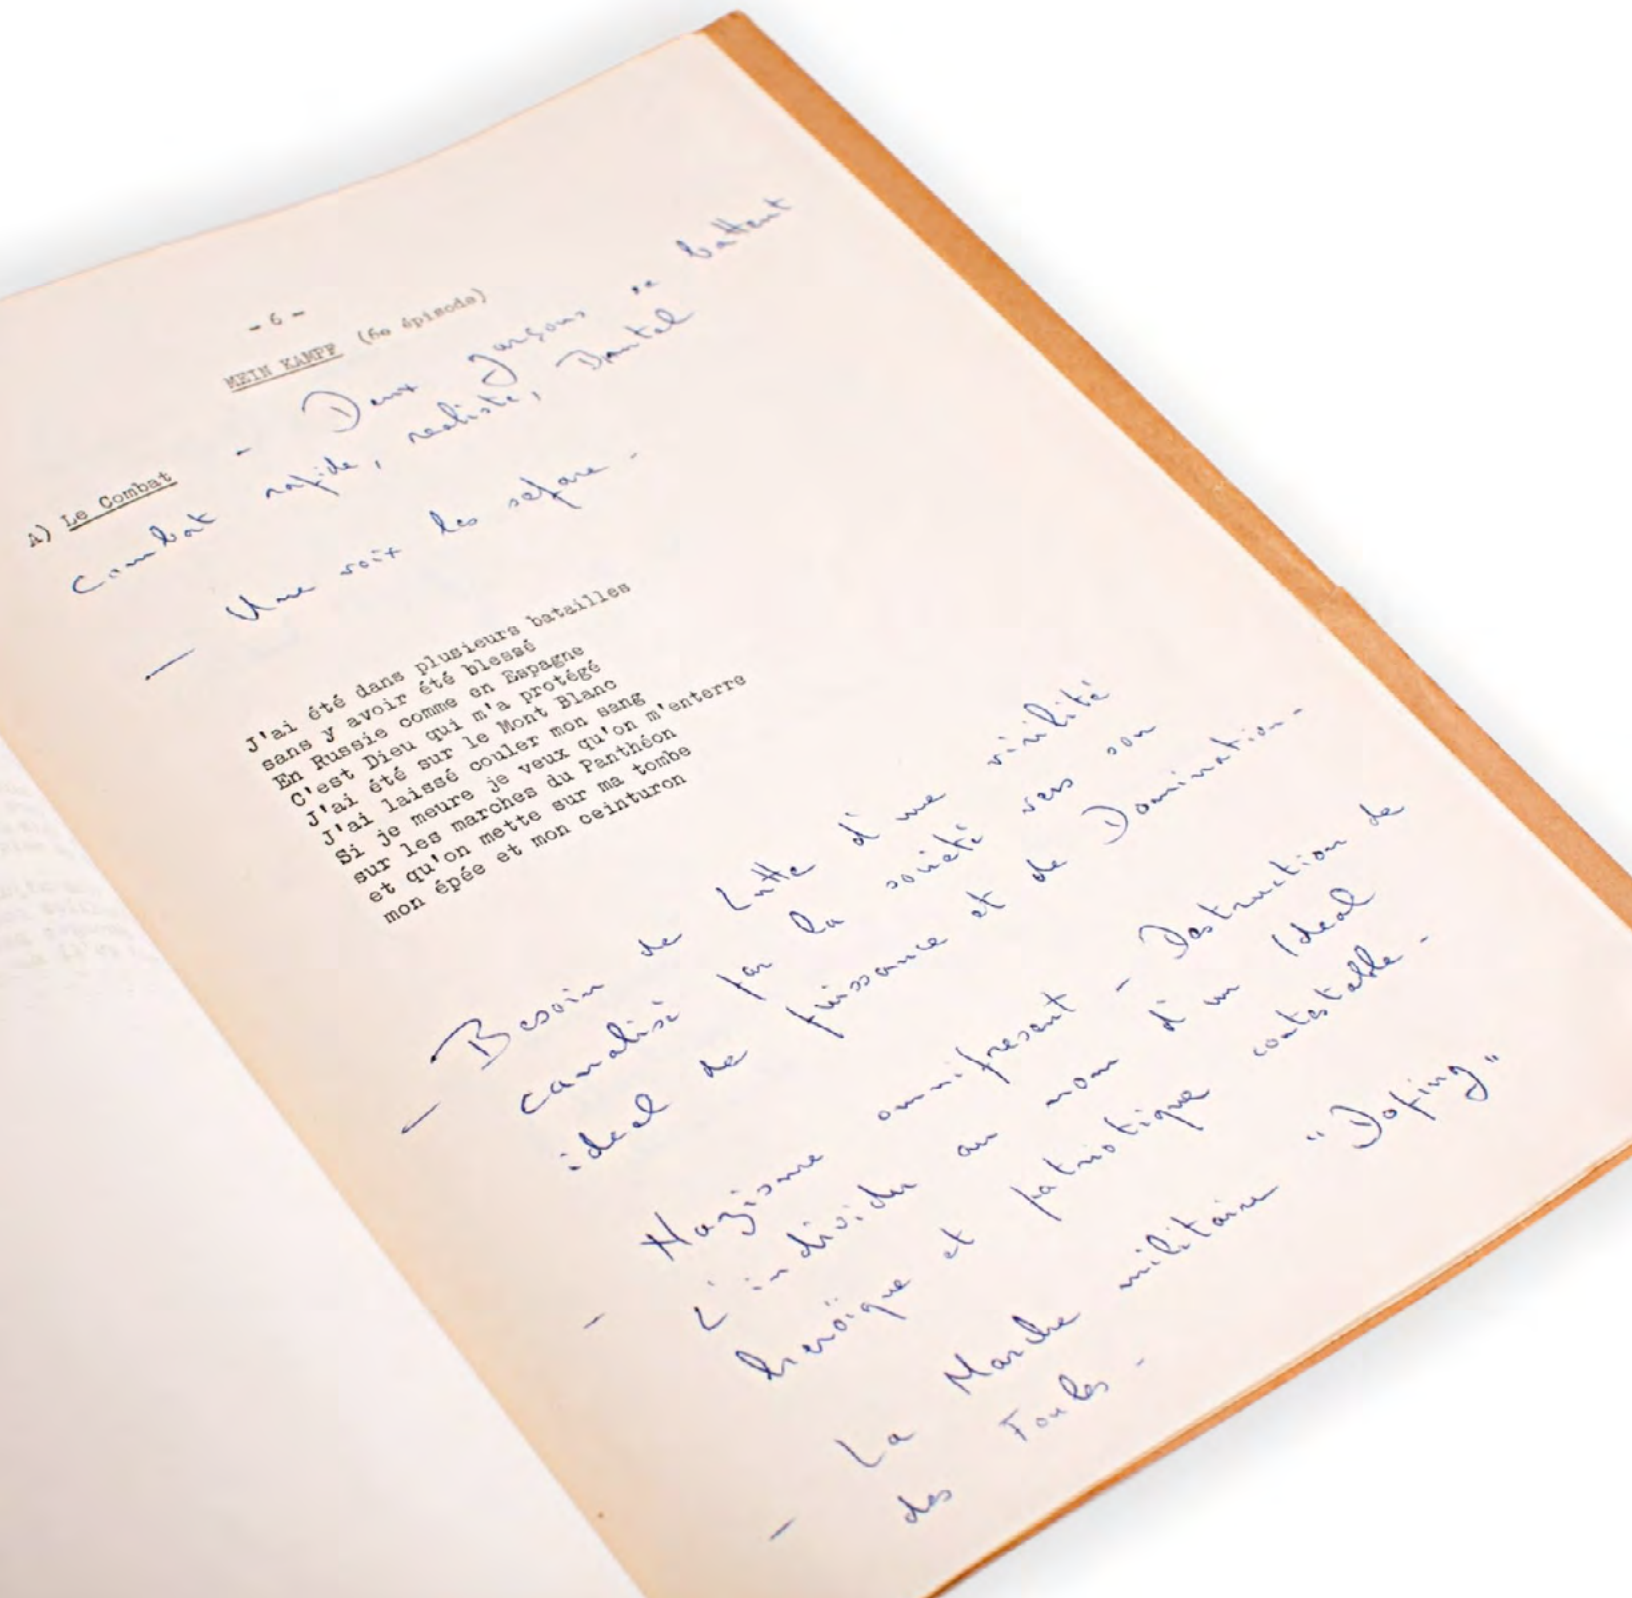 - 6 -
MEIN KAMPF (6e épisode)
A) Le Combat - Deux garçons se battent
Combat rapide, realiste, Brutal
— Une voix les separe -
J'ai été dans plusieurs batailles
sans y avoir été blessé
En Russie comme en Espagne
C'est Dieu qui m'a protégé
J'ai été sur le Mont Blanc
J'ai laissé couler mon sang
Si je meure je veux qu'on m'enterre
sur les marches du Panthéon
et qu'on mette sur ma tombe
mon épée et mon ceinturon
— Besoin de Lutte d'une virilité
canalisé par la société vers son
ideal de puissance et de Domination -
- Nazisme omnipresent - Destruction de
L'individu au nom d'un Ideal
heroïque et patriotique contestable -
- La Marche militaire "Doping"
des Foules -